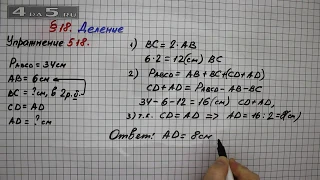 4DA5.RU
§18. Деление
Упражнение 518.
PABCD = 34см
AB = 6см
BC = ?см, в 2р.б.
CD = AD
AD = ?см
1) BC = 2·AB
6·2=12(см) BC
2) PABCD = AB+BC+(CD+AD)
CD+AD = PABCD-AB-BC
34-6-12=16(см) CD+AD,
3) т.к. CD=AD => AD=16:2=8(см)
Ответ: AD=8см